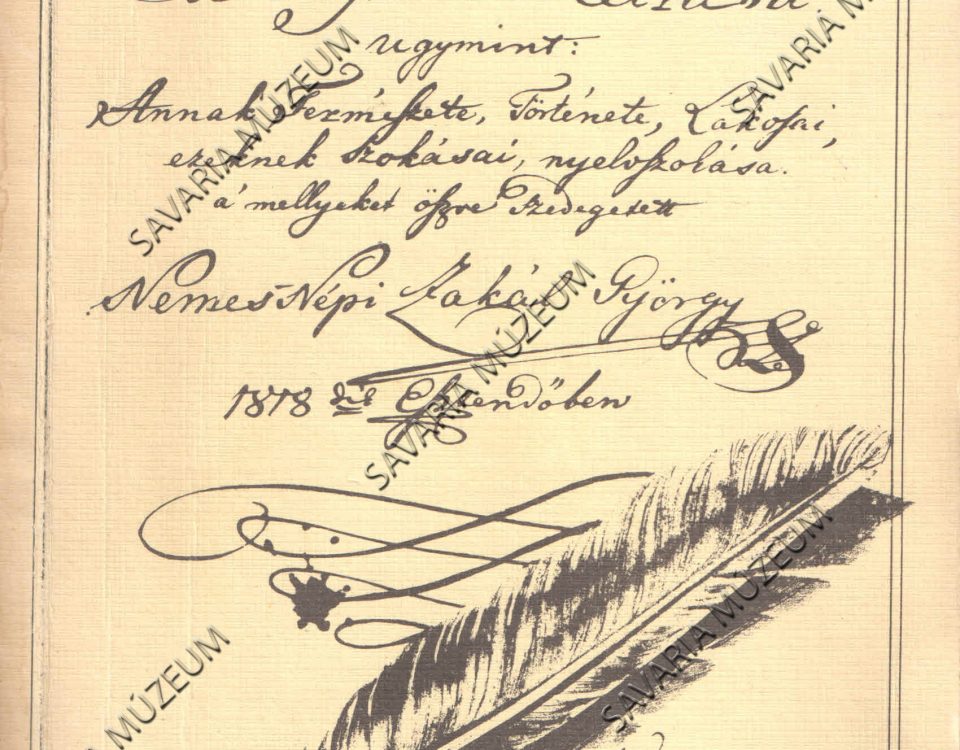 ugymint:
Annak Természete, Története, Lakosai,
ezeknek szokásai, nyelvszolása.
a' mellyeket öszve szedegetett
Nemes-Népi Zakál György
1818dik Esztendőben
SAVARIA MÚZEUM
SAVARIA MÚZEUM
SAVARIA MÚZEUM
SAVARIA MÚZEUM
MÚZEUM